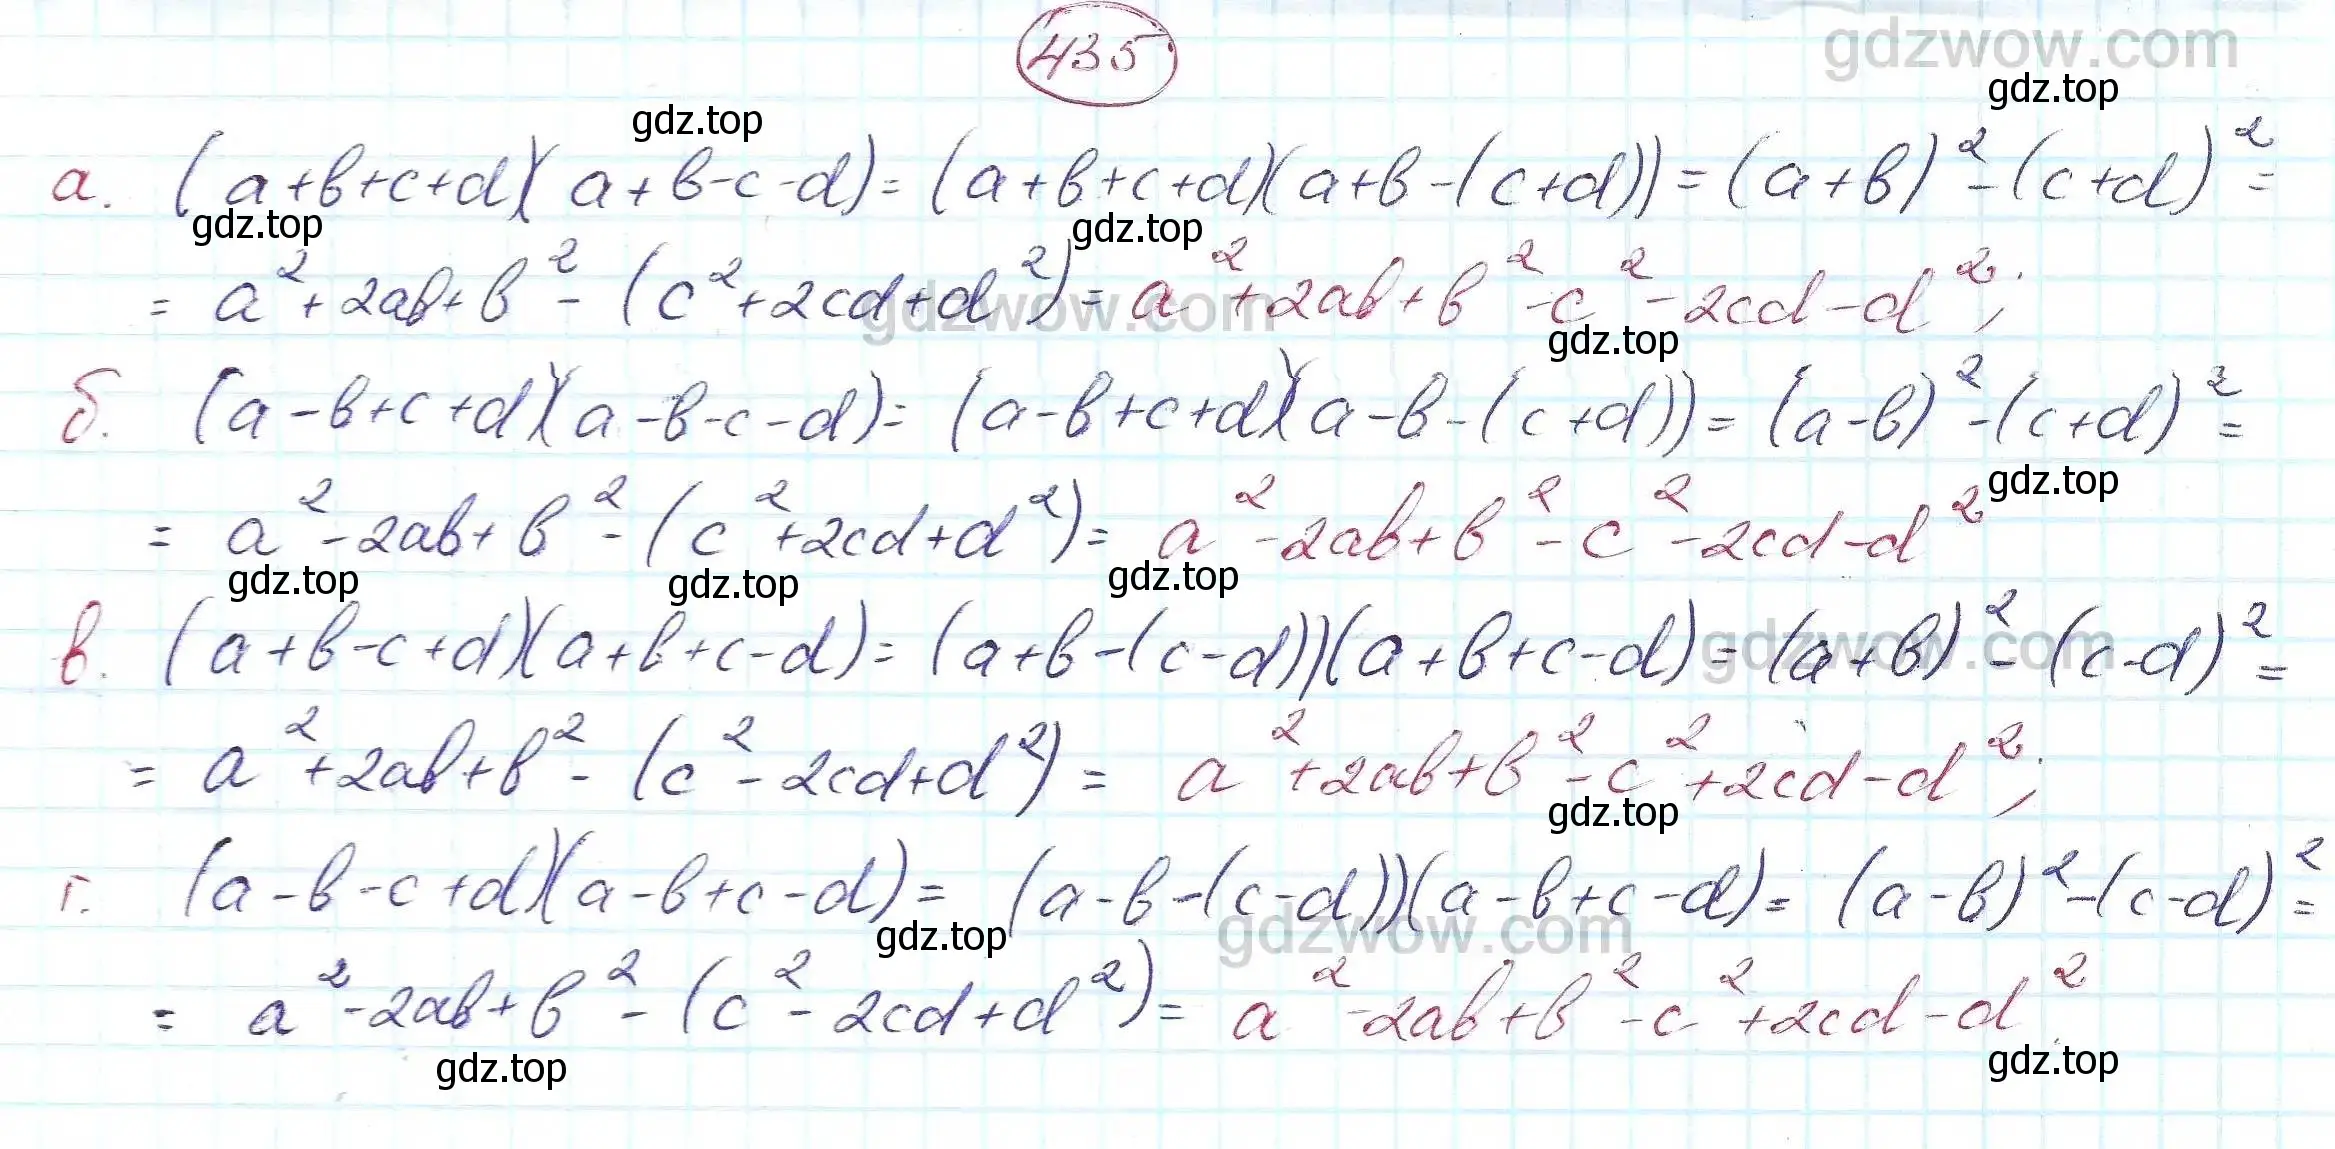 435
gdzwow.com
gdz.top
gdz.top
а. (a+b+c+d)(a+b-c-d)=(a+b+c+d)(a+b-(c+d))=(a+b)²-(c+d)²=
gdz.top
gdz.top
= a²+2ab+b²-(c²+2cd+d²)= a²+2ab+b²-c²-2cd-d²;
gdzwow.com
gdz.top
б. (a-b+c+d)(a-b-c-d)=(a-b+c+d)(a-b-(c+d))=(a-b)²-(c+d)²=
gdz.top
= a²-2ab+b²-(c²+2cd+d²)= a²-2ab+b²-c²-2cd-d²
gdz.top
gdz.top
gdz.top
в. (a+b-c+d)(a+b+c-d)=(a+b-(c-d))(a+b+c-d)=(a+b)²-(c-d)²=
gdzwow.com
= a²+2ab+b²-(c²-2cd+d²)= a²+2ab+b²-c²+2cd-d²;
gdz.top
г. (a-b-c+d)(a-b+c-d)= (a-b-(c-d))(a-b+c-d)=(a-b)²-(c-d)²=
gdz.top
gdzwow.com
= a²-2ab+b²-(c²-2cd+d²)= a²-2ab+b²-c²+2cd-d².
gdz.top
gdz.top